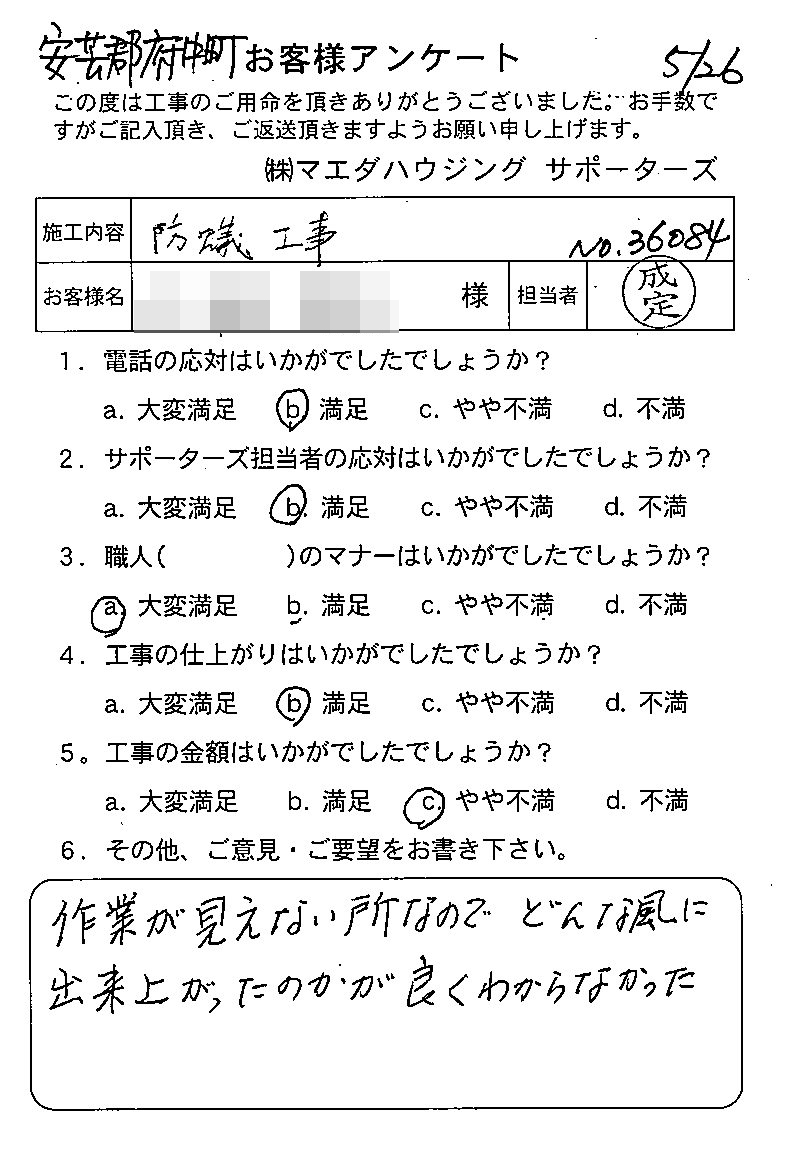 安芸郡府中町 お客様アンケート 5/26
この度は工事のご用命を頂きありがとうございました。お手数で
すがご記入頂き、ご返送頂きますようお願い申し上げます。
㈱マエダハウジング サポーターズ
施工内容 防蟻工事 No.36084
お客様名 様 担当者 成定
1. 電話の応対はいかがでしたでしょうか？
a. 大変満足 b. 満足 c. やや不満 d. 不満
2. サポーターズ担当者の応対はいかがでしたでしょうか？
a. 大変満足 b. 満足 c. やや不満 d. 不満
3. 職人( )のマナーはいかがでしたでしょうか？
a. 大変満足 b. 満足 c. やや不満 d. 不満
4. 工事の仕上がりはいかがでしたでしょうか？
a. 大変満足 b. 満足 c. やや不満 d. 不満
5。工事の金額はいかがでしたでしょうか？
a. 大変満足 b. 満足 c. やや不満 d. 不満
6. その他、ご意見・ご要望をお書き下さい。
作業が見えない所なので どんな風に
出来上がったのかが良くわからなかった